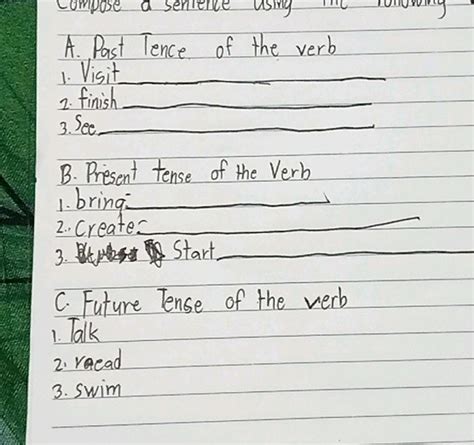 Compose a sentence using the following
A. Past Tence of the verb
1. Visit
2. finish
3. See
B. Present tense of the Verb
1. bring:
2. Create:
3. Start
C. Future Tense of the verb
1. Talk
2. read
3. swim